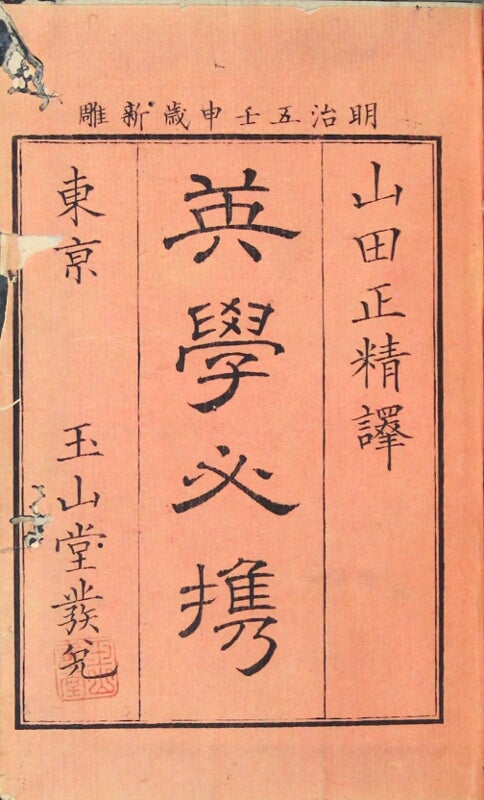 明治五壬申歳新雕
山田正精譯
英學必携
東京 玉山堂發兌